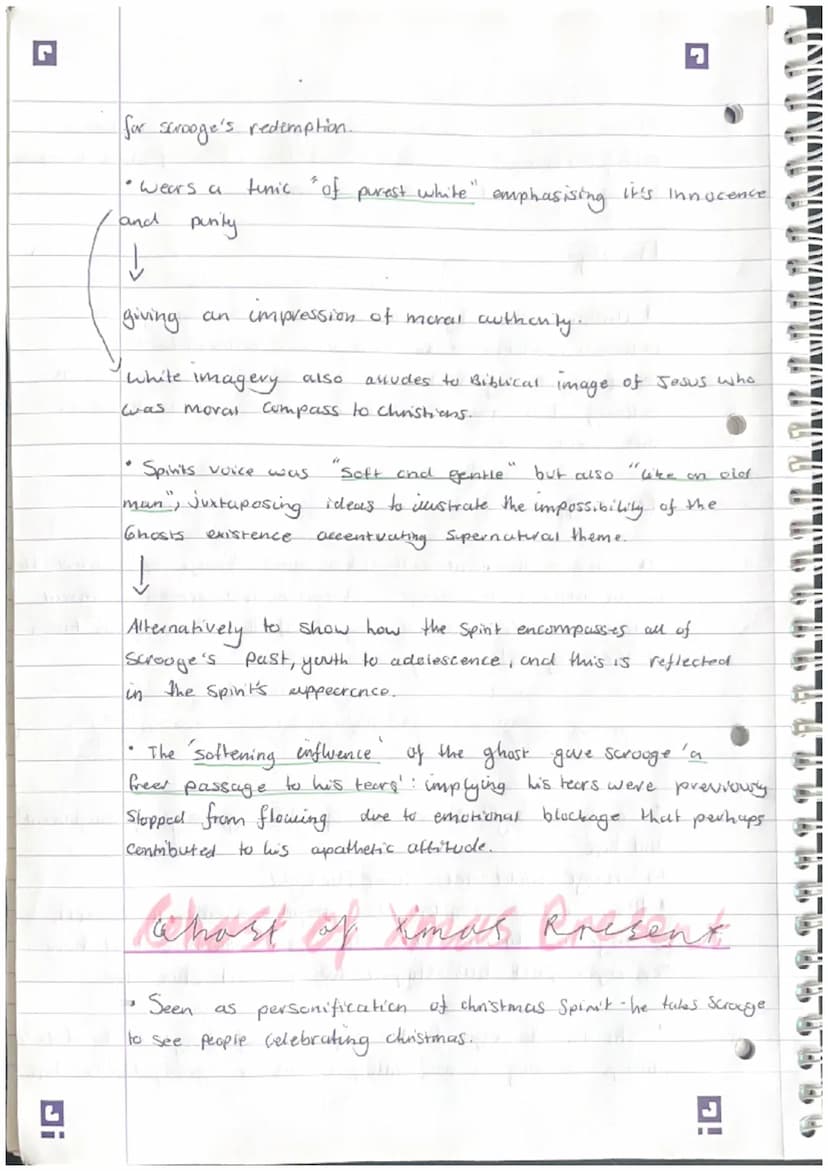 for scrooge's redemption.
• Wears a tunic "of purest white" emphasising it's innocence
and purity
↓
giving an impression of moral authority.
White imagery also alludes to Biblical image of Jesus who
was moral compass to Christians.
• Spirits voice was "soft and gentle" but also "like an old
man", juxtaposing ideas to illustrate the impossibility of the
Ghosts existence accentuating supernatural theme.
↓
Alternatively to show how the spirit encompasses all of
Scrooge's past, youth to adolescence, and this is reflected
in the spirit's appearance.
• The 'softening influence' of the ghost gave scrooge 'a
freer passage to his tears': implying his tears were previously
stopped from flowing due to emotional blockage that perhaps
contributed to his apathetic attitude.
Ghost of Xmas Present
• Seen as personification of christmas spirit - he takes Scrooge
to see people celebrating christmas.